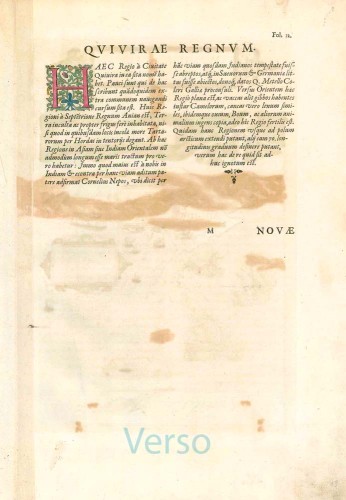 Fol. 12.
QVIVIRAE REGNVM.
HAEC Regio à Ciuitate
Quiuira in ea sita nomē ha-
bet. Pauci sunt qui de hac
scribunt quādoquidem ex-
tra communem nauigandi
cursum sita est. Huic Regi-
oni à Septētrione Regnum Anian est, Ter-
ra inculta ac propter frigus ferè inhabitata, ni-
si quod in quibusdam locis incolæ more Tarta-
rorum per Hordas in tentorijs degant. Ab hac
Regione in Asiam siue Indiam Orientalem nō
admodùm longum esse maris tractum pro ve-
ro habetur: Immo quod maius est à nobis in
Indiam & è contra per hanc viam aditum pa-
tere adfirmat Cornelius Nepos, vbi dicit per
hāc viam quosdam Indianos tempestate fuis-
se abreptos, atq; in Sueuorum & Germaniæ lit-
tus fuisse proiectos, denoq; datos Q. Metello Ce-
leri Galliæ proconsuli. Versus Orientem hæc
Regio plana est, ac vaccas alit gibbos habentes
instar Camelorum, canum verò linum simi-
les, ibidemque omnium, Boum, ac aliorum ani-
malium ingens copia, adeò hæc Regio fertilis est.
Quidam hanc Regionem vsque ad polum
arcticum extendi putant, alij cum 70. lon-
gitudinis graduum desinere putant,
verùm hac de re quid sit ad-
huc ignotum est.
M NOVÆ
Verso